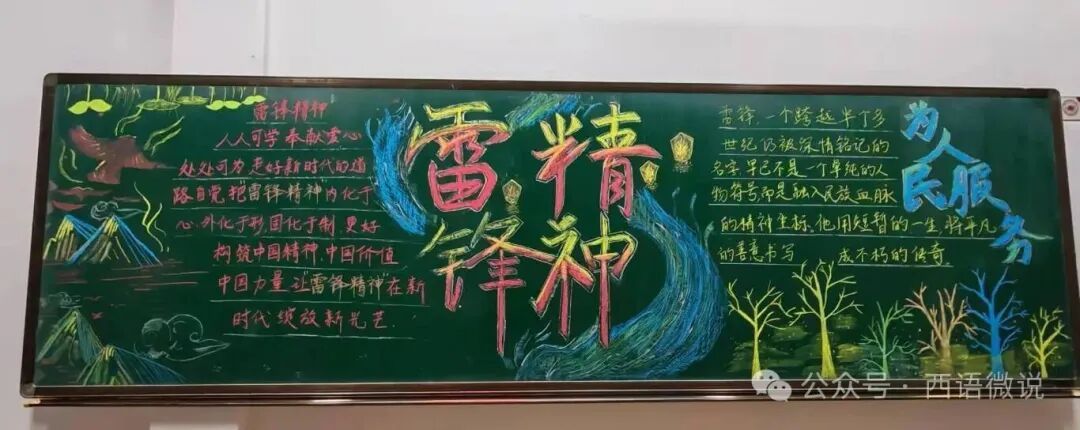 雷锋精神
人人可学奉献爱心
处处可为走好新时代的道
路自觉把雷锋精神内化于
心、外化于形、固化于制、更好
构筑中国精神、中国价值
中国力量、让雷锋精神在新
时代绽放新光芒.
雷锋精神
雷锋,一个跨越半个多
世纪仍被深情铭记的
名字早已不是一个单纯的人
物符号,而是融入民族血脉
的精神坐标、他用短暂的一生,将平凡
的善意书写 成不朽的传奇
为人民服务
公众号·西语微说